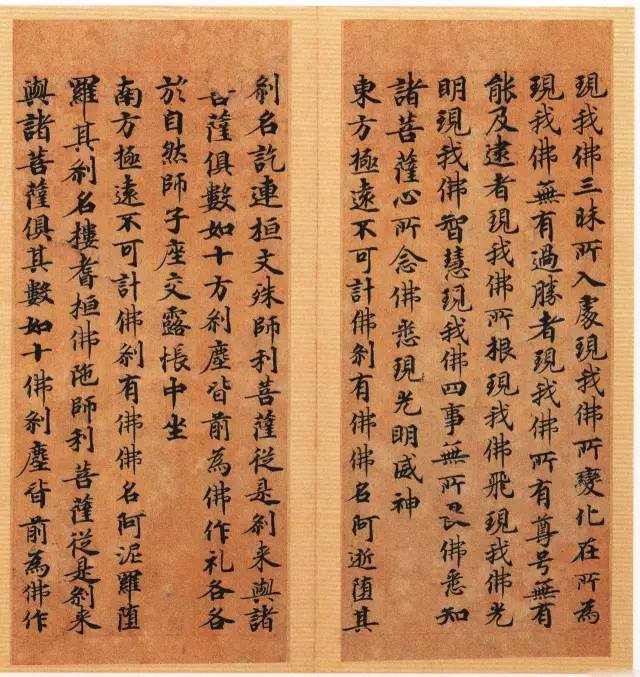 現我佛三昧所入處現我佛所變化在所為
現我佛無有過勝者現我佛所有尊号無有
能及逮者現我佛所根現我佛飛現我佛光
明現我佛智慧現我佛四事無所畏佛悉知
諸菩薩心所念佛悉現光明威神
東方極遠不可計佛刹有佛佛名阿逝墮其
刹名訖連桓文殊師利菩薩從是刹来與諸
菩薩俱數如十方刹塵皆前為佛作礼各各
於自然師子座交露帳中坐
南方極遠不可計佛刹有佛佛名阿泥羅墮
羅其刹名樓耆桓佛陁師利菩薩從是刹来
與諸菩薩俱其數如十佛刹塵皆前為佛作